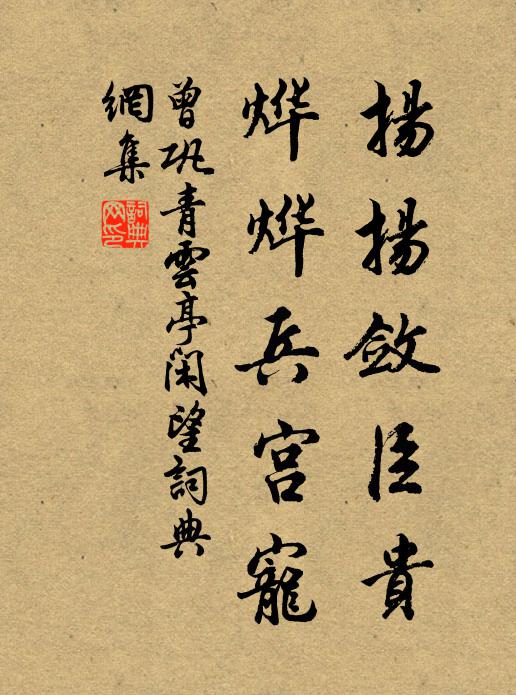 揚揚斂臣貴
烨烨兵官寵
曾巩青雲亭閑望詞典
網集
詞典
网印